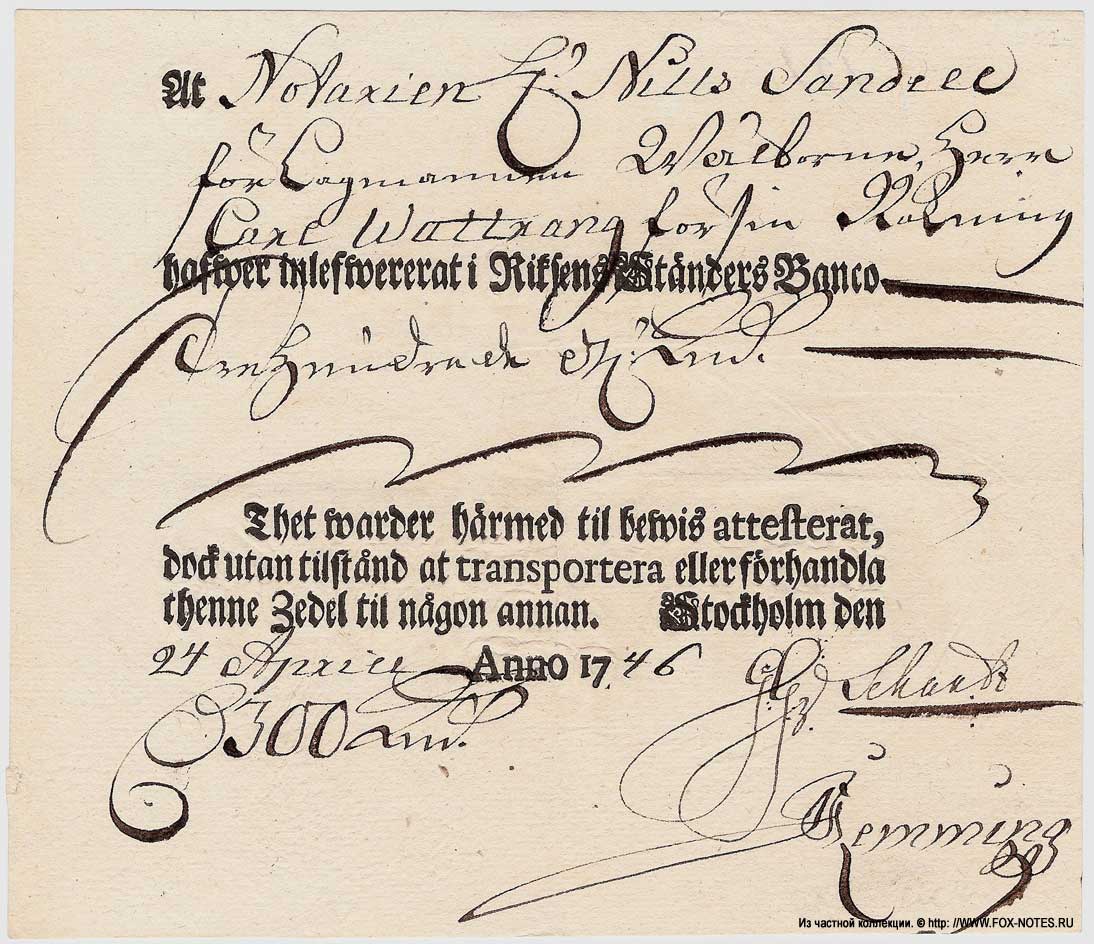 At Notarien H: Nills Sandell
för Lagmannen Wälborne Herr
Carl Wattrang för sin Räkning
hafwer inlefwererat i Riksens Ständers Banco
Trehundrade
Thet warder härmed til bewis attesterat,
dock utan tilstånd at transportera eller förhandla
thenne Zedel til någon annan. Stockholm den
24 Aprill Anno 1746
300
Schardt
Flemming
Из частной коллекции. © http: //WWW.FOX-NOTES.RU